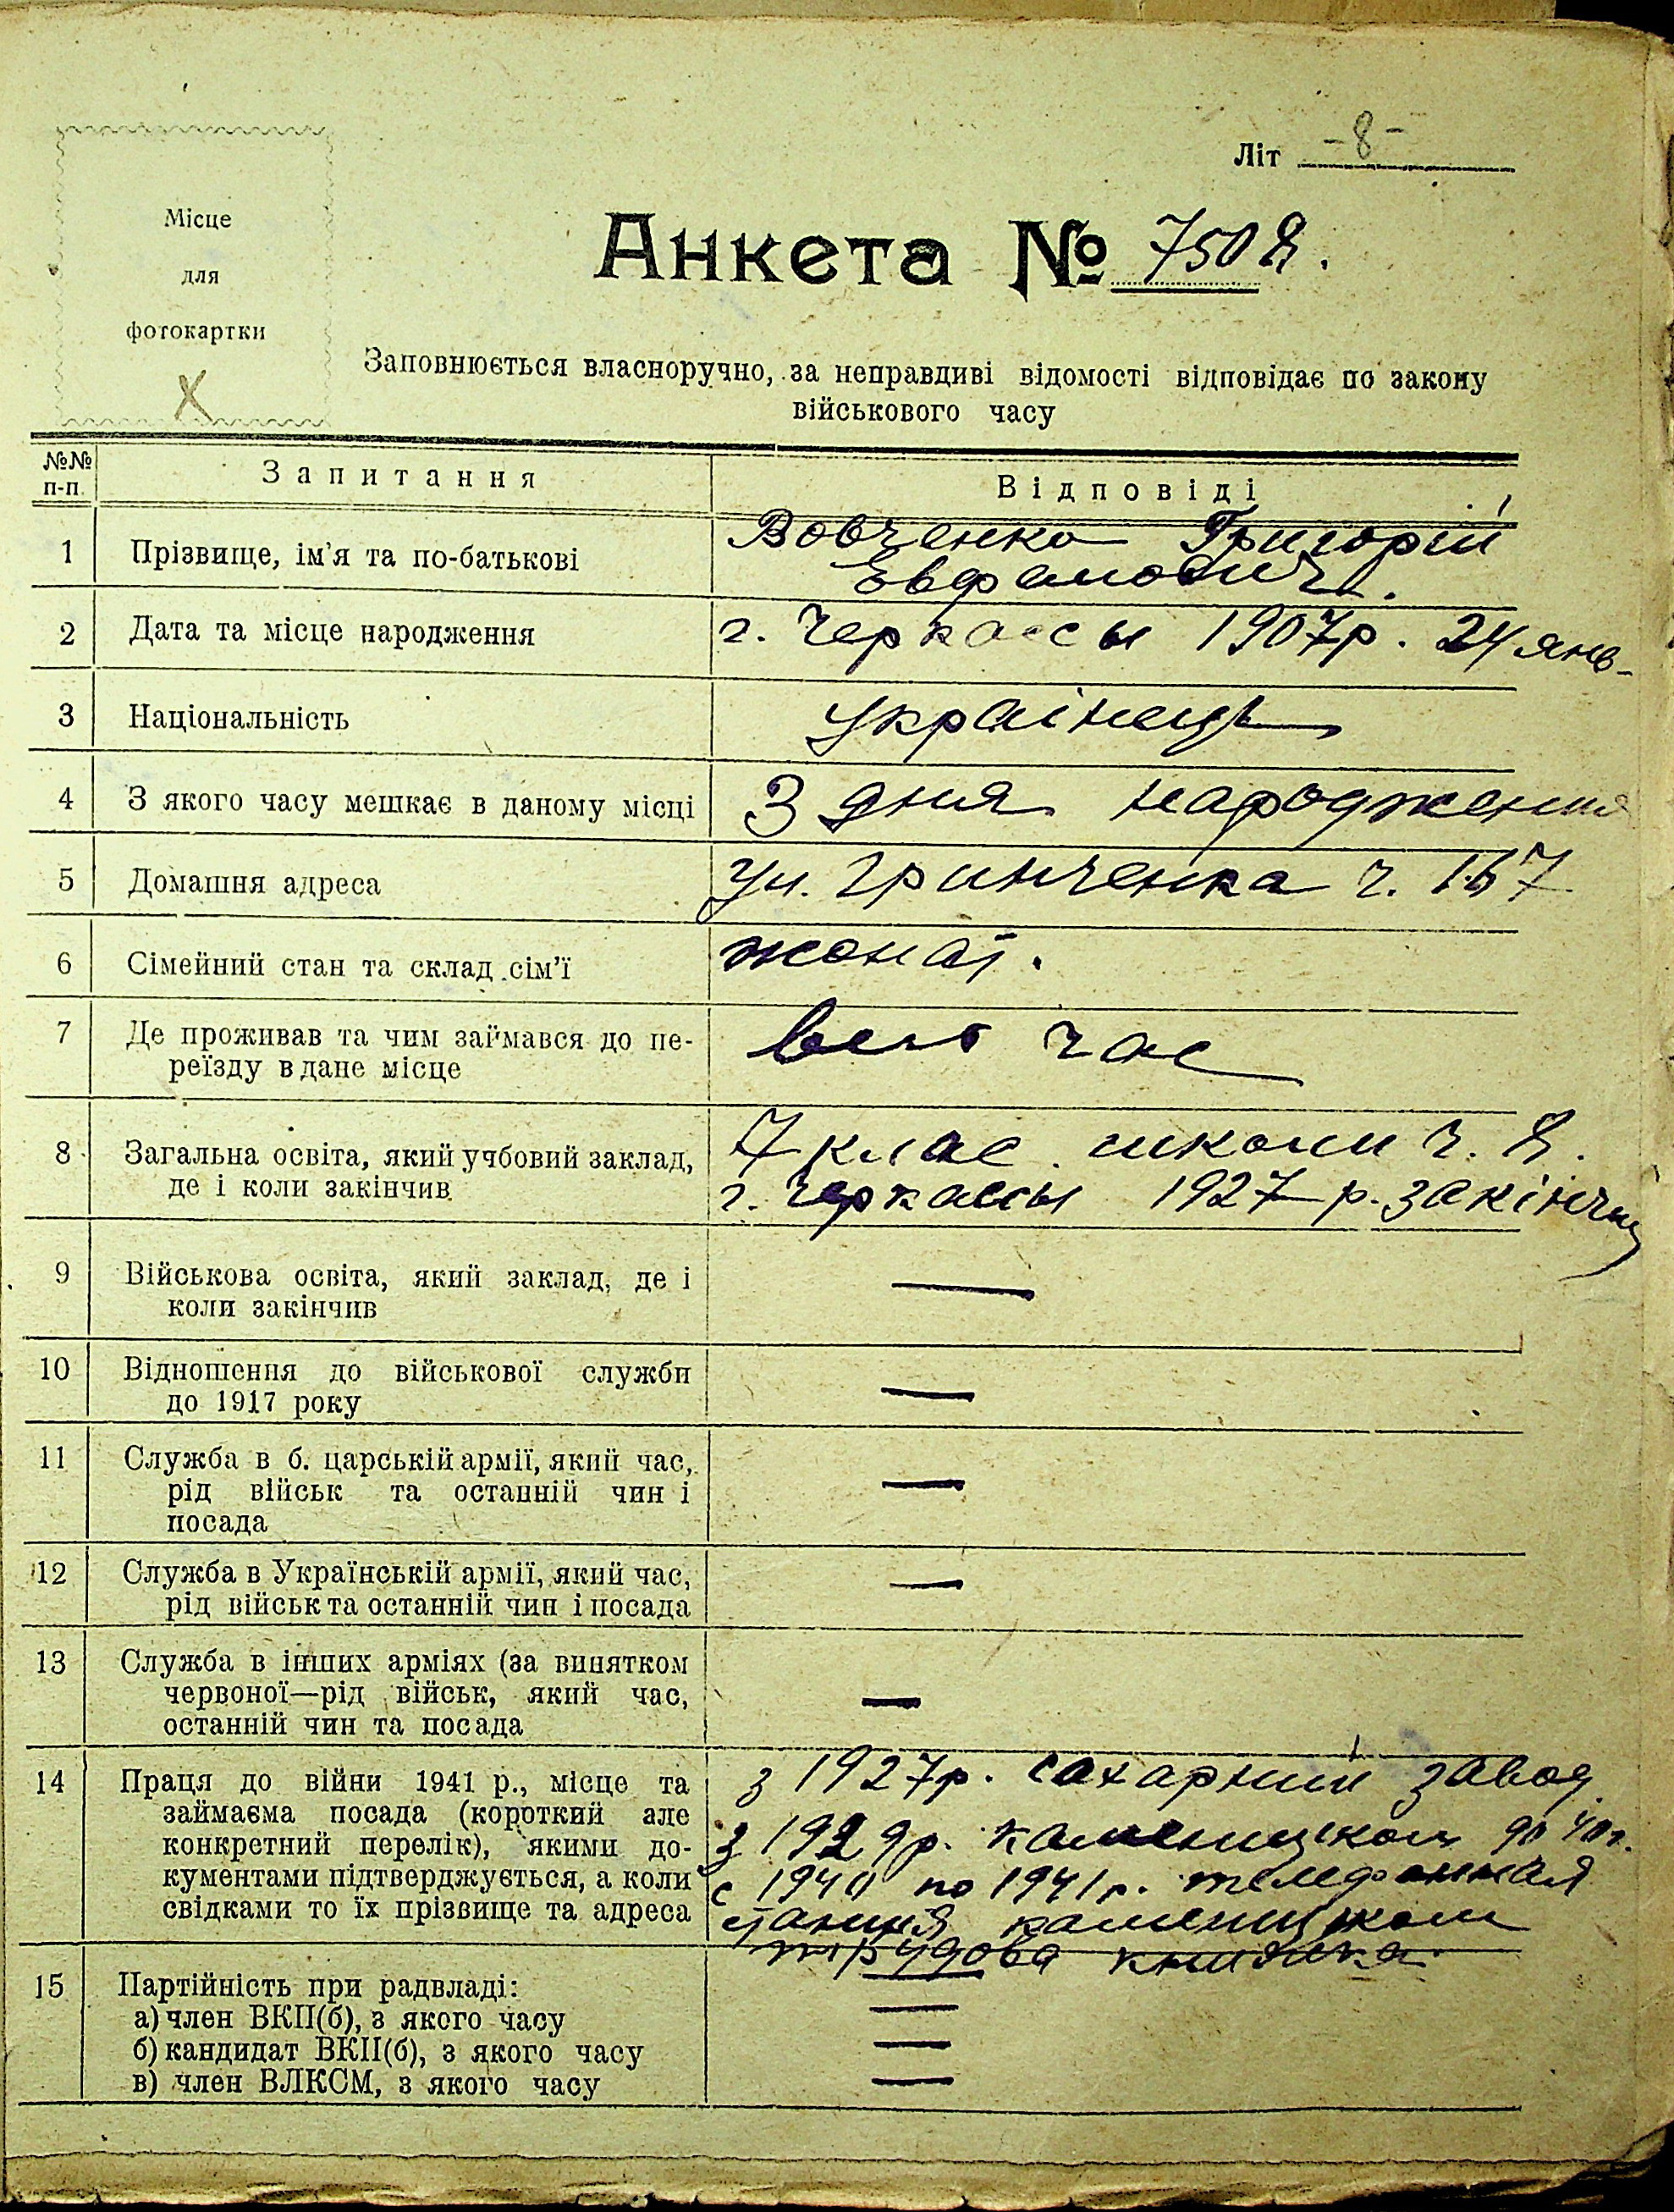 Літ -8-
Місце
для
фотокартки
Анкета № 7508.
Заповнюється власноручно, за неправдиві відомості відповідає по закону
військового часу
№№
п-п.
Запитання
Відповіді
1 Прізвище, ім'я та по-батькові
Вовченко Григорій
2 Дата та місце народження
г. Черкассы 1907р. 24 янв-
3 Національність
українець
4 З якого часу мешкає в даному місці
З дня народження
5 Домашня адреса
ул. Грінченка ч. 167
6 Сімейний стан та склад сім'ї
жонат.
7 Де проживав та чим займався до пе-
реїзду в дане місце
весь час
8 Загальна освіта, який учбовий заклад,
де і коли закінчив
7 клас школи ч. 8.
г. Черкассы 1927 р. закінчив
9 Військова освіта, який заклад, де і
коли закінчив
—
10 Відношення до військової служби
до 1917 року
—
11 Служба в б. царській армії, який час,
рід військ та останній чин і
посада
—
12 Служба в Українській армії, який час,
рід військ та останній чин і посада
—
13 Служба в інших арміях (за винятком
червоної—рід військ, який час,
останній чин та посада
—
14 Праця до війни 1941 р., місце та
займаєма посада (короткий але
конкретний перелік), якими до-
кументами підтверджується, а коли
свідками то їх прізвище та адреса
з 1927р. сахарний завод
з 1929р. до 40г.
с 1940 по 1941р. телефонная
станция
трудова книжка
15 Партійність при радвладі:
а) член ВКП(б), з якого часу
—
б) кандидат ВКП(б), з якого часу
—
в) член ВЛКСМ, з якого часу
—